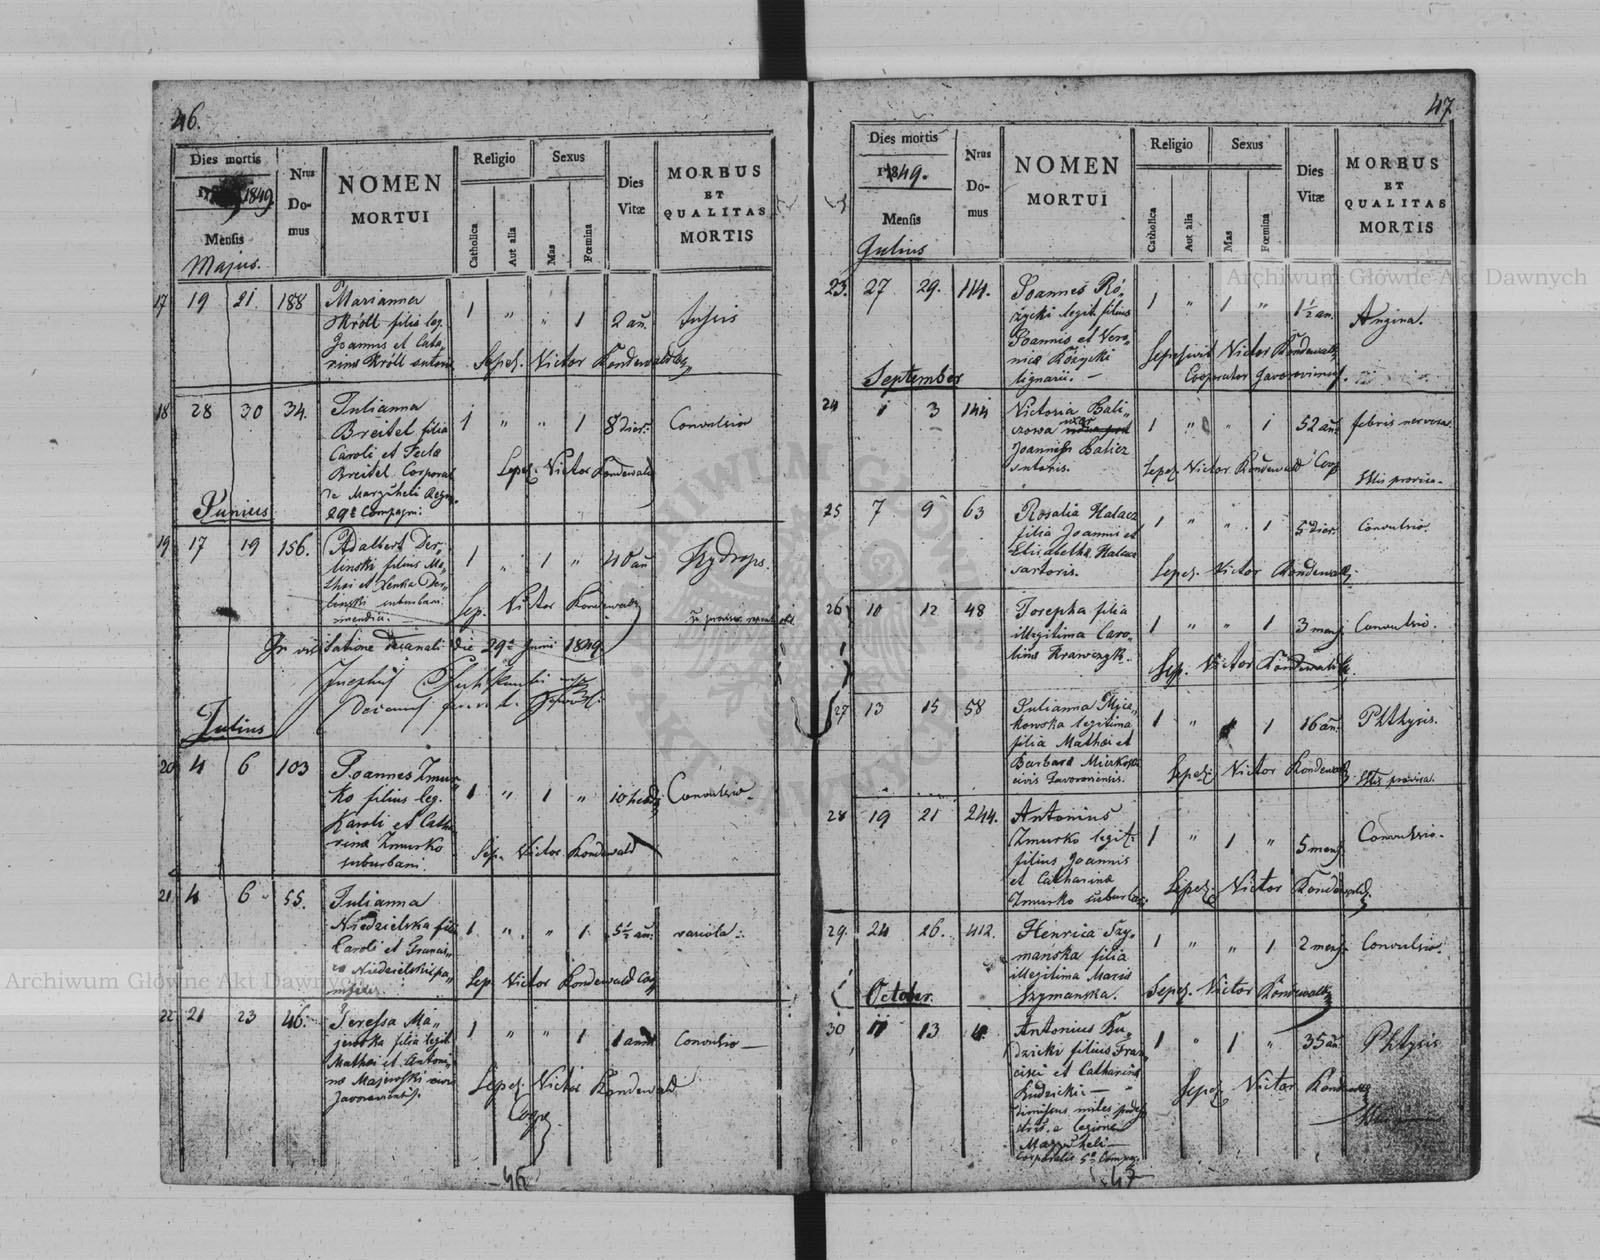 46.
Dies mortis
1849
Mensis
Majus.
Nrus
Do-
mus
NOMEN
MORTUI
Religio
Catholica
Aut alia
Sexus
Mas
Fœmina
Dies
Vitæ
MORBUS
ET
QUALITAS
MORTIS
17 19 21 188 Marianna
Król filia leg.
Joannis et Cata-
rina Król sutoris
1 " " 1 2 an. Tussis
Sepel. Victor Kondewald
18 28 30 34. Julianna
Breitel filia
Caroli et Tecla
Breitel Corporal
29 Compagn:
1 " " 1 8 dier: Convulsio
Sepel. Victor Kondewald
Junius
19 17 19 156. Adalbert Der-
linski filius Ma-
thei et Der-
linski suburbani
1 " 1 " 40 an Hydrops.
Sep. Victor Kondewald
In visitatione Decanali die 29 Juni 1849
Josephus
Decanus
Julius
20 4 6 103 Joannes Żmur-
ko filius leg.
Karoli et Catha-
rina Żmurko
suburbani.
1 " 1 " 10 hebd Convulsio
Sep. Victor Kondewald
21 4 6 55. Julianna
Niedzielska filia
Caroli et Francis-
ca Niedzielski
1 " " 1 5½ an. variola
Sep Victor Kondewald Coop
22 21 23 46. Teressa Ma-
jewska filia legit
Mathei et Antoni-
na Majewski
1 " " 1 1 anni Convulsio
Sepel. Victor Kondewald
Coop
46
47
Dies mortis
1849.
Mensis
Julius
Nrus
Do-
mus
NOMEN
MORTUI
Religio
Catholica
Aut alia
Sexus
Mas
Fœmina
Dies
Vitæ
MORBUS
ET
QUALITAS
MORTIS
23. 27 29. 114. Joannes Ró-
życki legit. filius
Joannis et Vero-
nica Różycki
lignarii.
1 " 1 " 1½ an. Angina.
Sepelivit Victor Kondewald
Cooperator
September
24 1 3 144 Victoria Bali-
czowa uxor
Joannis Balicz
sutoris.
1 " " 1 52 an. febris nervosa.
Sepel. Victor Kondewald Coop
25 7 9 63 Rosalia Halacz
filia Joannis et
Elisabetha Halacz
sartoris.
1 " " 1 5 dier. Convulsio.
Sepel. Victor Kondewald
26 10 12 48 Josepha filia
illegitima Caro-
lina Krawczyk.
1 " " 1 3 mens Convulsio.
Sep. Victor Kondewald
27 13 15 58 Julianna
legitima
filia Mathei et
Barbara
civis Javoroviensis.
1 " 1 16 an. Phthysis.
Sepel: Victor Kondewald
28 19 21 244. Antonius
Żmurko legit:
filius Joannis
et Catharina
Żmurko suburbani
1 " 1 " 5 mens Convulsio
Sepel: Victor Kondewald
29. 24 26. 412. Henrica Szy-
mańska filia
illegitima Maria
Szymanska.
1 " " 1 2 mens Convulsio
Sepel. Victor Kondewald
October.
30 11 13 4. Antonius Ku-
dzicki filius Fran-
cisci et Catharina
Kudzicki
miles
a legione
Corporalis 5
1 " 1 " 35 an. Phthysis
Sepel. Victor Kondewald
47
Archiwum Główne Akt Dawnych
Archiwum Główne Akt Dawnych
ARCHIWUM GŁÓWNE AKT DAWNYCH